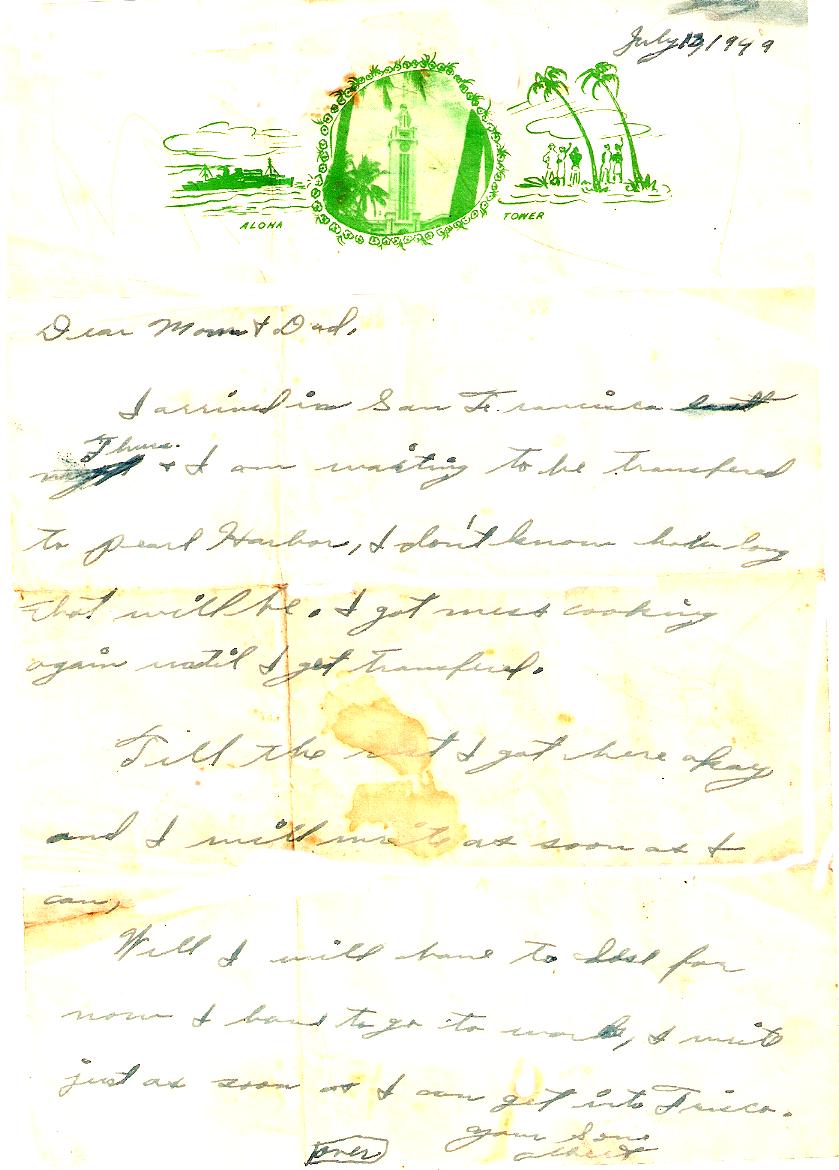 July 12, 1949
ALOHA TOWER
Dear Mom & Dad,
I arrived in San Francisco
Thurs. & I am waiting to be transfered
to pearl Harbor, I don't know how long
that will be. I got mess cooking
again until I get transfered.
Tell the rest I got here okay
and I will write as soon as I
can,
Well I will have to close for
now I have to go to work, I write
just as soon as I can get into Frisco.
your Son
Albert
over